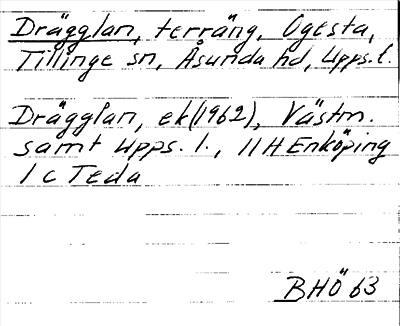 Drägglan, terräng, Ogesta,
Tillinge sn, Åsunda hd, Upps. l.
Drägglan, ek (1962), Västm.
samt Upps. l., 11H Enköping
1 c Teda
BHÖ 63